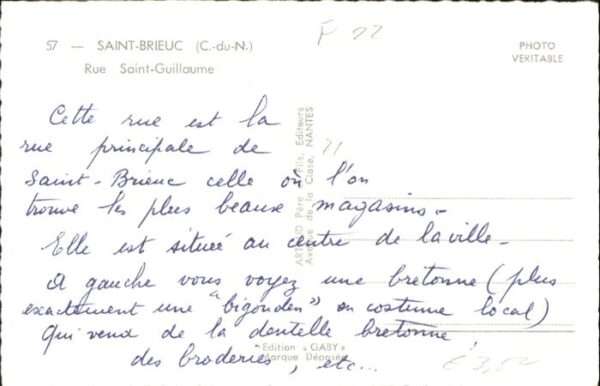 57 — SAINT-BRIEUC (C.-du-N.)
Rue Saint-Guillaume
F 22
PHOTO
VERITABLE
Cette rue est la
rue principale de
Saint-Brieuc celle où l'on
trouve les plus beaux magasins -
Elle est située au centre de la ville -
A gauche vous voyez une bretonne (plus
exactement une "bigouden" en costume local)
qui vend de la dentelle bretonne
des broderies, etc...
ARTAUD Père & Fils, Editeurs
Avenue de la Close, NANTES
71
"Edition «GABY»
Marque Déposée